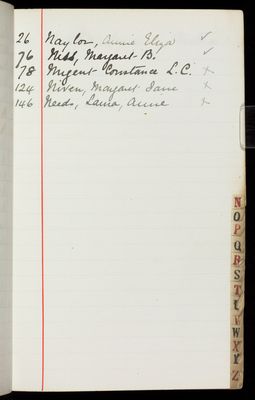 26 Naylor, Annie Eliza ✓
76 Nisb, Margaret B. ✓
78 Nugent Constance L.C. ×
124 Niven, Margaret Jane ×
146 Needs, Laura, Anne ×
N
O
P
Q
R
S
T
U
V
W
X
Y
Z